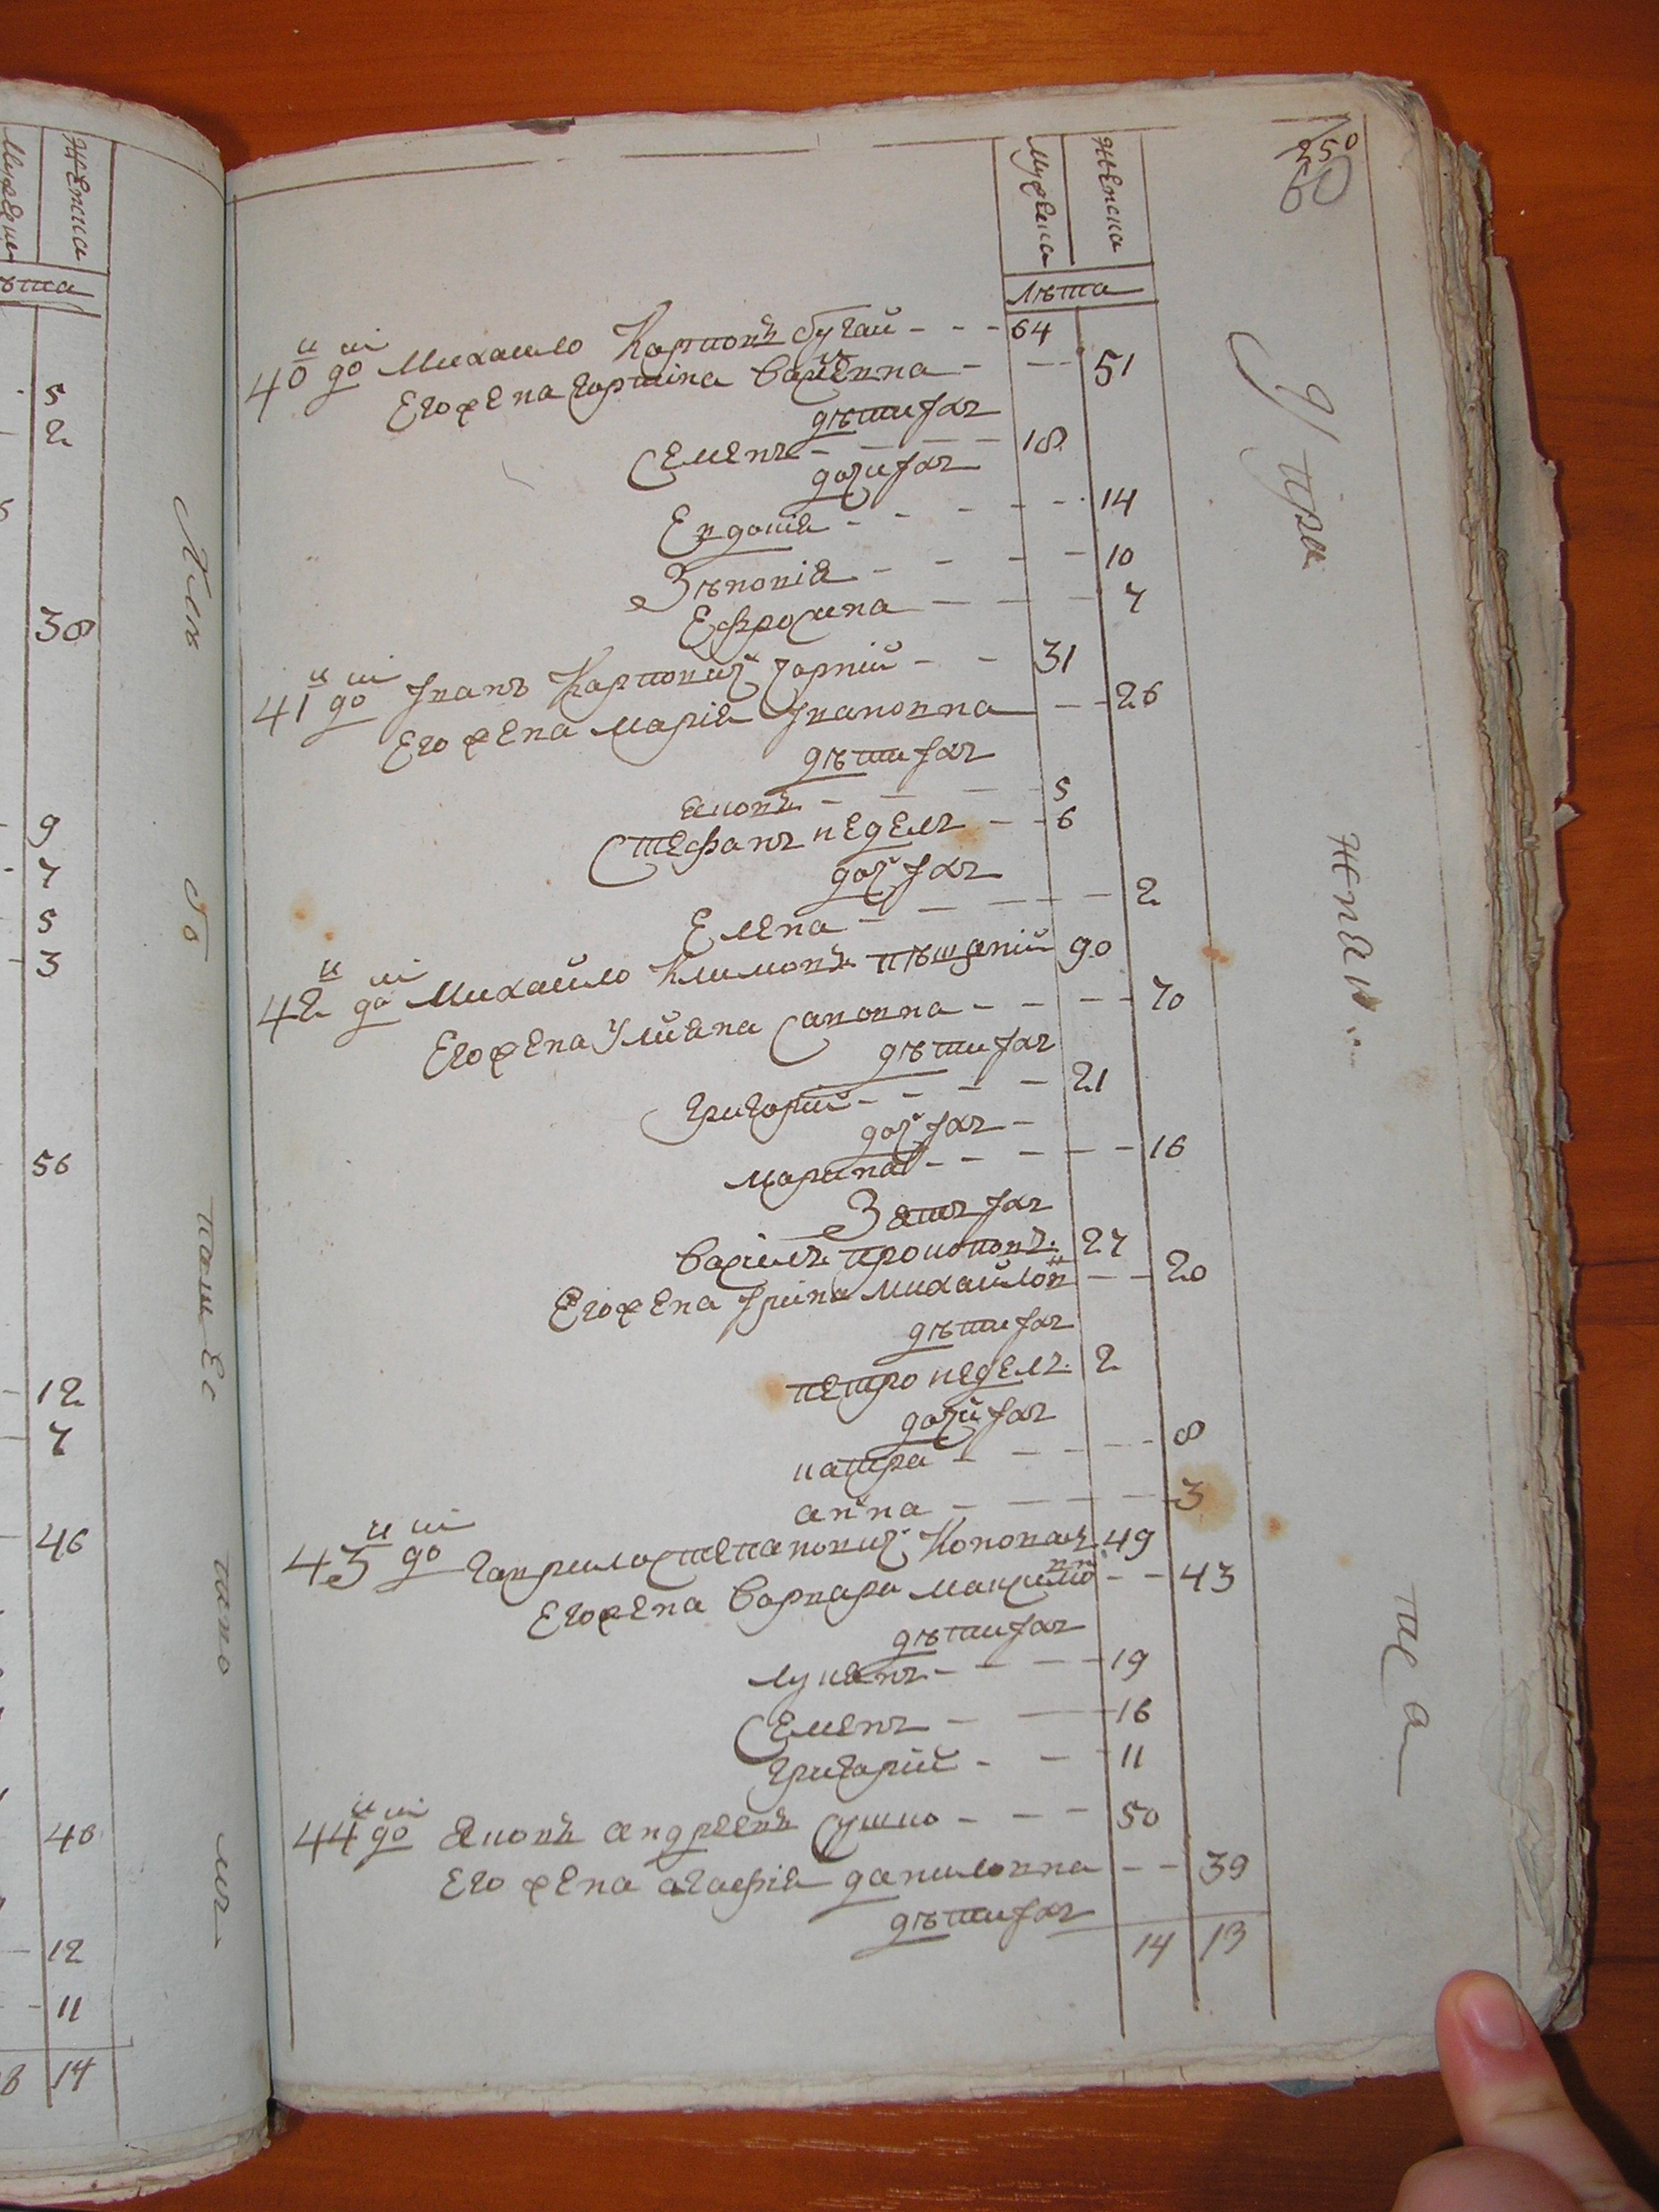 250
60
Мужеска Женска
Лѣта
40 й до ш Михайло Карповъ бугай - - - 64
Его жена гарпина Василевна - - - 51
дѣти Јхъ
Семенъ - - - - 18
дочки Јхъ
Евдокія - - - - - 14
Зѣновія - - - - - 10
Ефросина - - - - 7
41 й до ш Јванъ Карповичъ чорній - - 31
Его жена марія Јвановна - - 26
дѣти Јхъ
Яковъ - - - 5
Стефанъ недель - - 6
доч Јхъ
Елена - - - - - 2
42 й до ш Михайло Климовъ пѣщаній 90
Его жена Улияна Савовна - - - - 70
дѣти Јхъ
григорий - - - - 21
доч Јхъ -
марина - - - - - 16
Зять Јхъ
Василь прокоповъ. 27
Его жена Јрина михайловн - - 20
дѣти Јхъ
петро недель. 2
дочки Јхъ
патра - - - - - 8
анна - - - - - 3
43 й до ш гаврило степановичъ Коновалъ 49
Его жена варвара максимовн - - 43
дѣти Јхъ
лукянъ - - - - 19
Семенъ - - 16
григорій - - - 11
44 й до ш Яковъ андреевъ Сушко - - - 50
Его жена агафія даниловна - - 39
дѣти Јхъ
14 13
Женска
ѣта
5
2
38
9
7
5
3
56
12
7
46
40
12
11
14